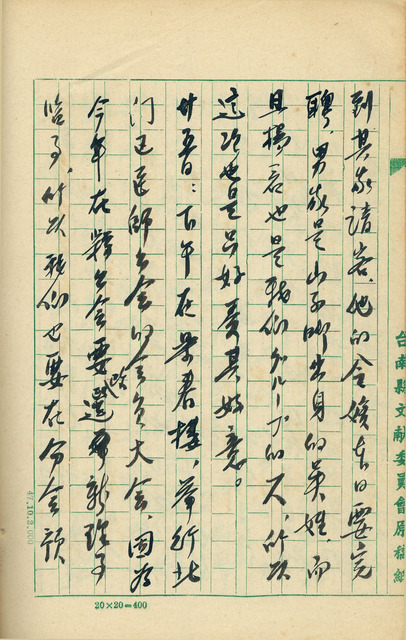 到其家請客。他的令嬡本日要完
聘，男家是山子脚出身的吳姓，而
且楊君也是我們グループ的人，所以
這次也是只好受其好意。
廿五日：下午在共君樓，舉行北
門區醫師公會的會員大會，因為
今年在縣公會要改選新理事
監事，所以我們也要在分會預
台南縣文献委員會原稿紙
47.10.2,000
20×20=400